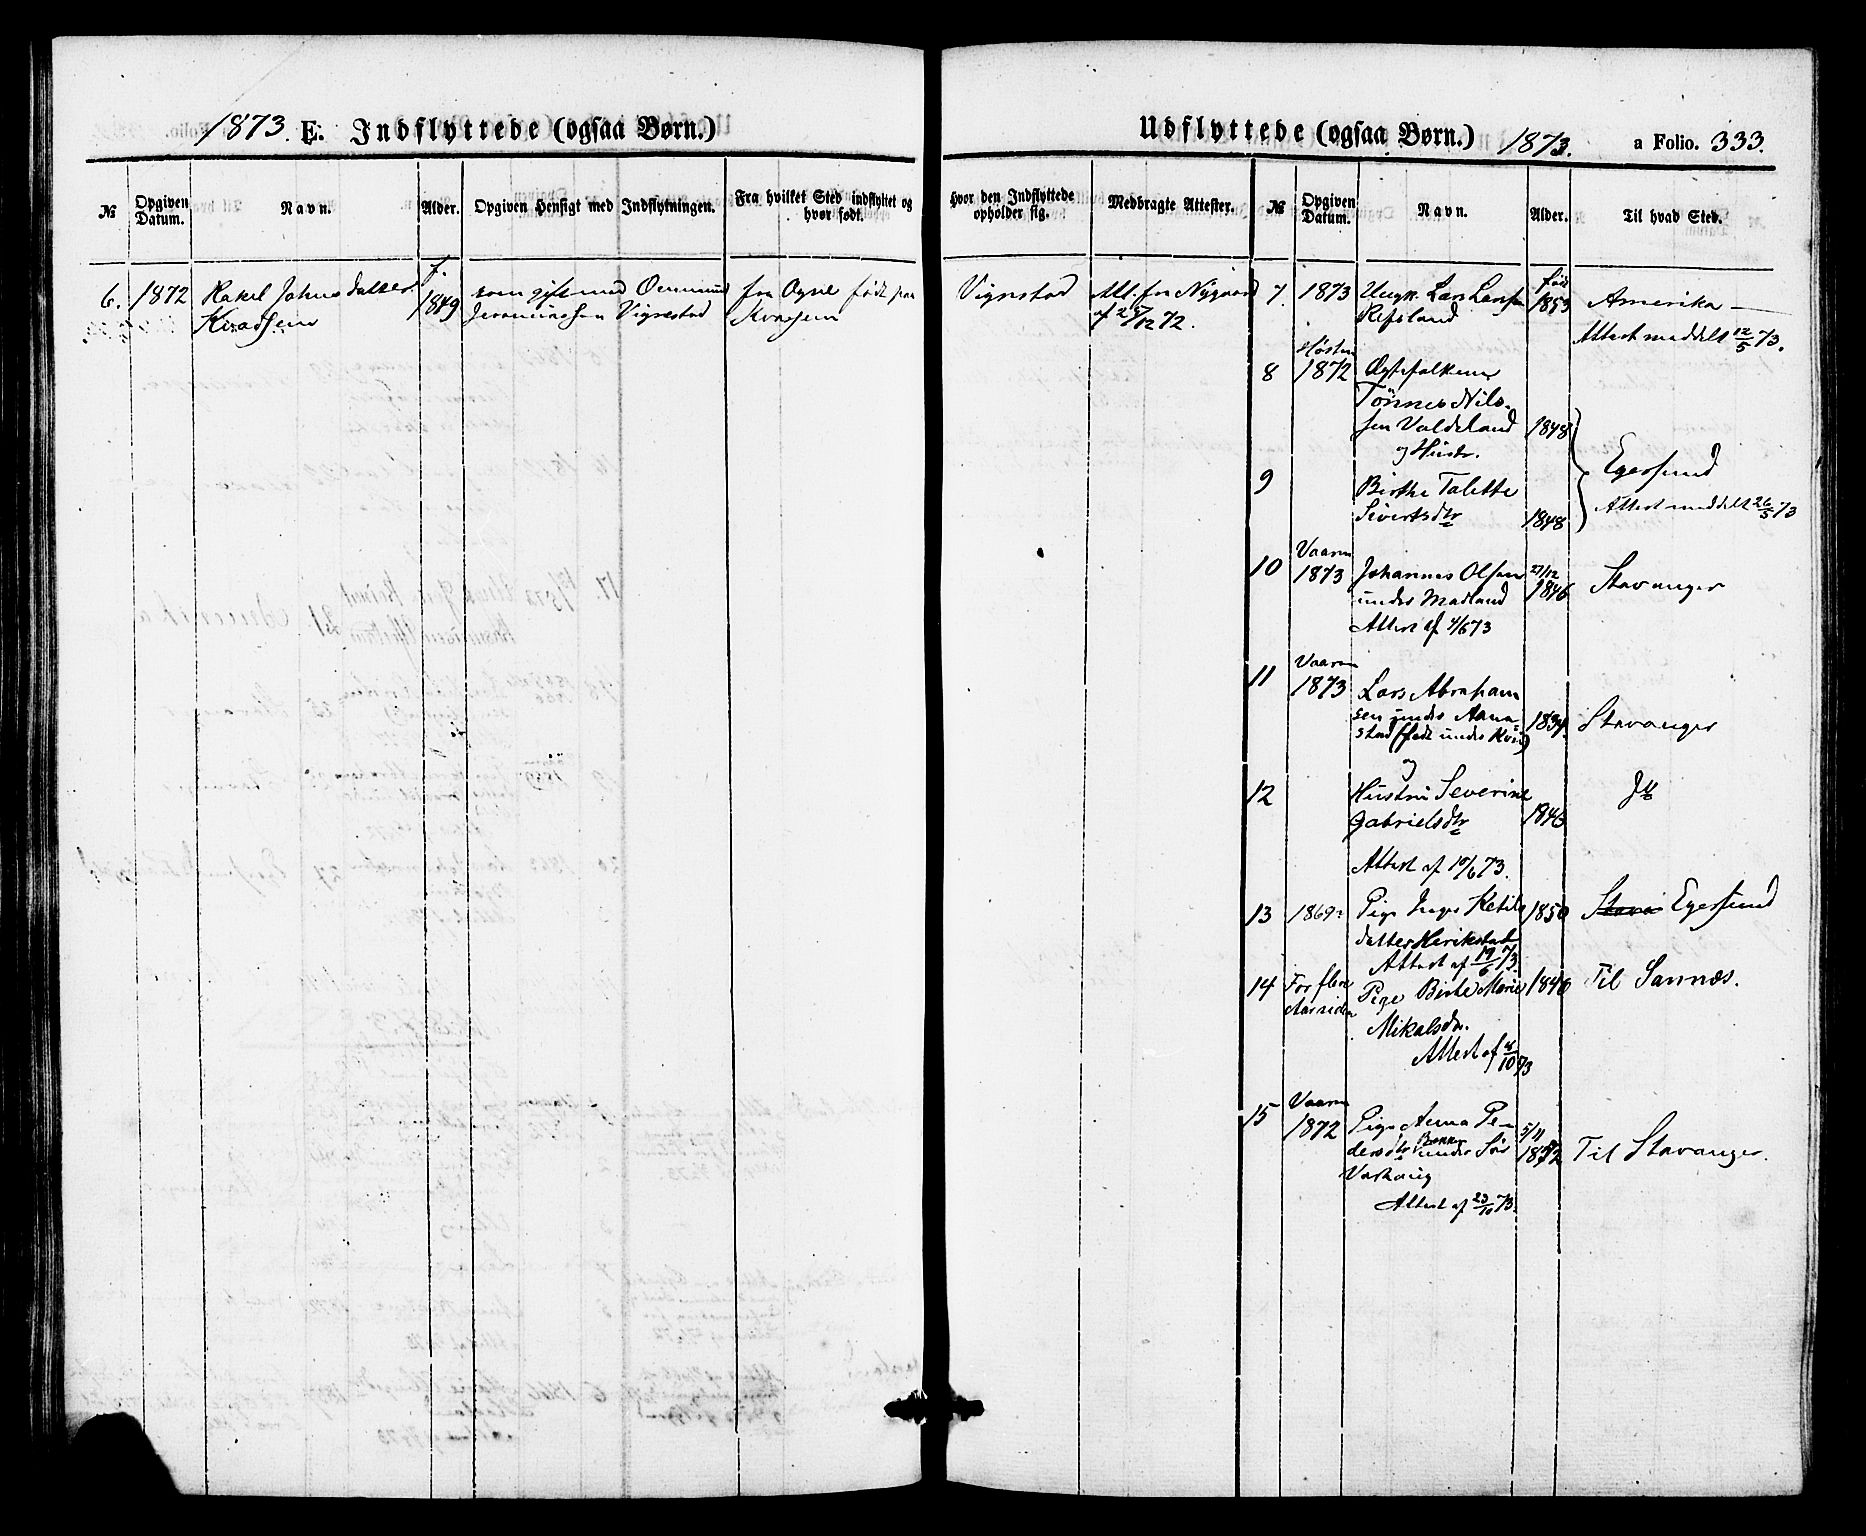 1873. E. Indflyttede (ogsaa Børn.)
№
Opgiven Datum.
Navn.
Alder.
Opgiven Hensigt med Indflytningen.
Fra hvilket Sted indflyttet og hvor født.
6. 1872 Rakel Johnsdatter f. 1849 som gift med Ommund fra Ogne født paa
Jeremiassen Vigrestad
Udflyttede (ogsaa Børn.) 1873. a Folio. 333.
Hvor den Indflyttede opholder sig.
Medbragte Attester.
№
Opgiven Datum.
Navn.
Alder.
Til hvad Sted.
Vigrestad Att. fra Nygaard
af
12 72.
7. 1873 Ungk. Lars Larsen født 1853 Amerika —
Refsland
Attest meddelt 12/5 73.
8 Høsten 1872 Ægtefolkene
Tönnes Nils-
sen Valdeland 1848
og Hustr.
9 Birthe Talette
Sivertsdtr 1848
Egersund
Attest meddelt 26/5 73
10 Vaaren 1873 Johannes Olsen 27/12 1846 Stavanger
under Madland
Attest af 4/6 73
11 Vaaren 1873 Lars Abraham
sen under Aana-
stad (født under Kvia) 1834. Stavanger
og
12 Hustru Severine
Gabrielsdtr 1843
Attest af 10/6 73.
13 1869 Pige Inger Ketils 1850 Stava Egersund
datter Herikstad
Attest af 19/6 73.
14 For flere Aar siden Pige Birte Marie 1846 Til Sannæs.
Mikalsdr.
Attest af 4/10 73
15 Vaaren 1872 Pige Anna Pe-
dersdtr under Sör 5/11 1872 Til Stavanger.
Varhaug
Attest af 23/10 73.